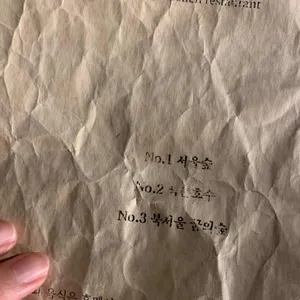 restaurant
No.1 서울숲
No.2 석촌호수
No.3 북서울 꿈의숲
음식을